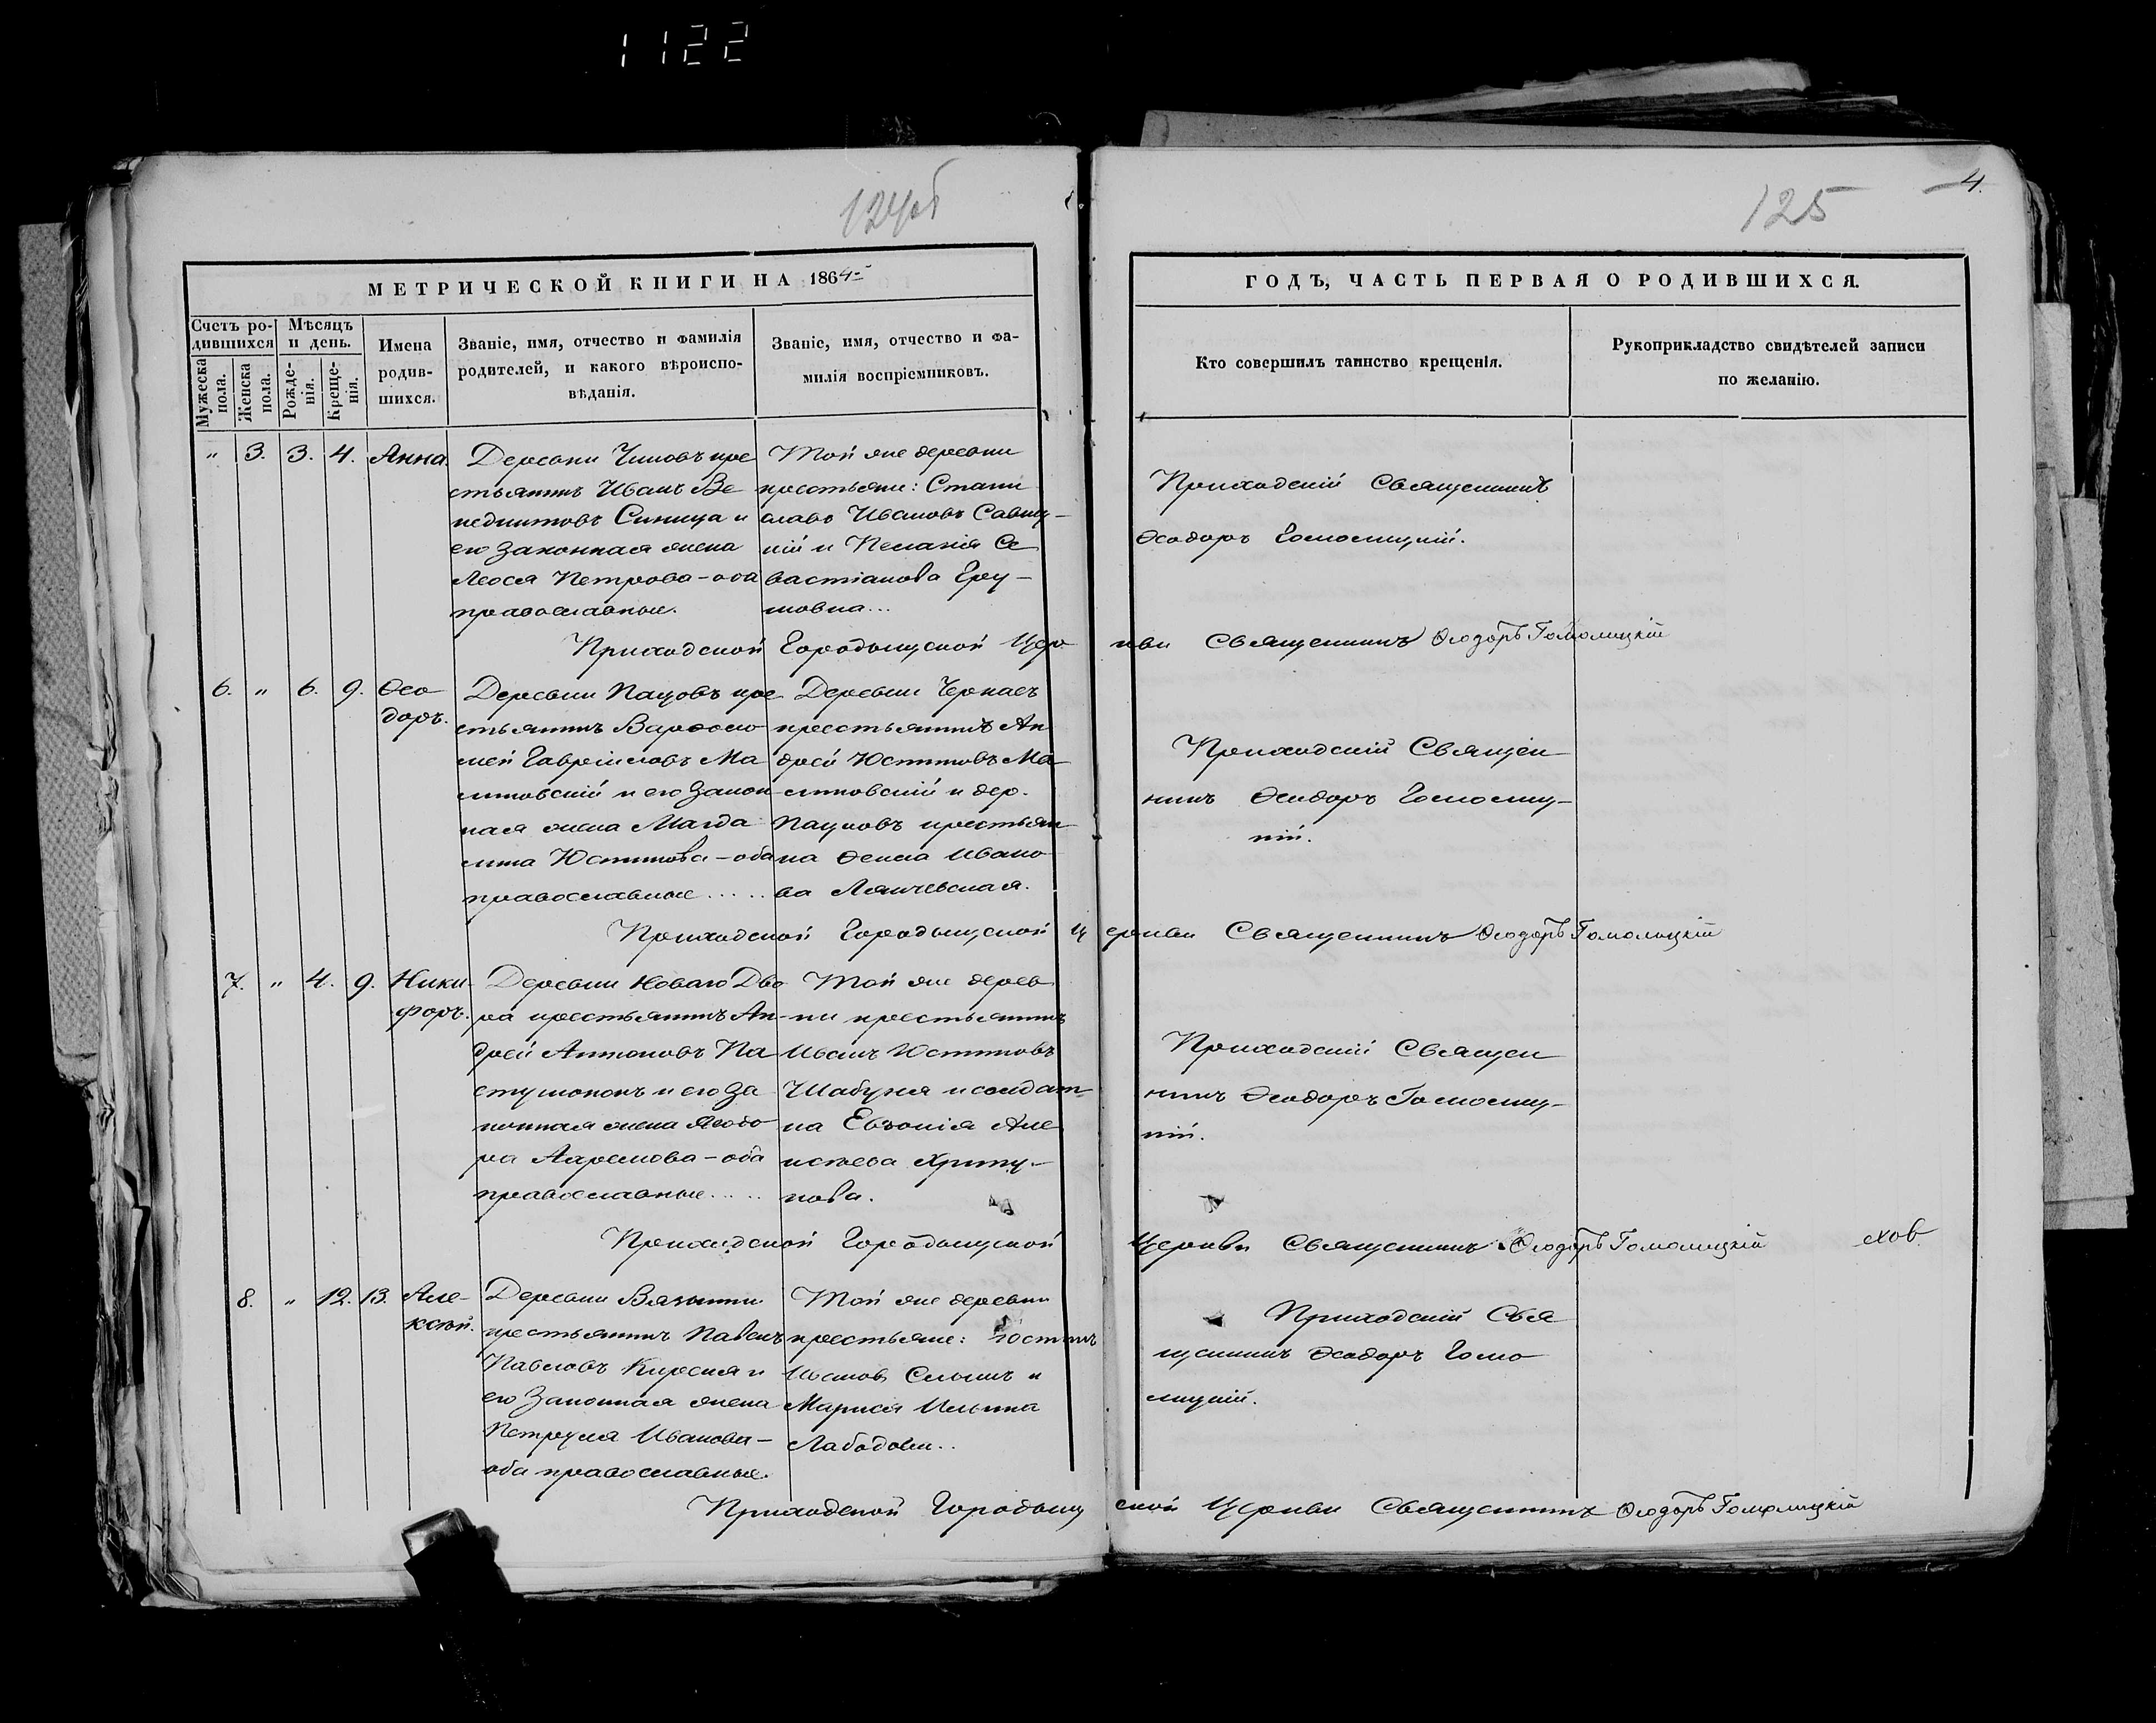 1122
124об
125
4.
МЕТРИЧЕСКОЙ КНИГИ НА 1864-
ГОДЪ, ЧАСТЬ ПЕРВАЯ О РОДИВШИХСЯ.
Счетъ ро-
дившихся
Мужеска
пола.
Женска
пола.
Мѣсяцъ
и день.
Рожде-
нія.
Креще-
нія.
Имена
родив-
шихся.
Званіе, имя, отчество и фамилія
родителей, и какого вѣроиспо-
вѣданія.
Званіе, имя, отчество и фа-
милія воспріемниковъ.
Кто совершилъ таинство крещенія.
Рукоприкладство свидѣтелей записи
по желанію.
" 3. 3. 4. Анна.
Деревни Чиновъ кре
стьянинъ Иванъ Ве
недиктовъ Синица и
его законная жена
Петрова - оба
православные.
Той же деревни
крестьяне: Стани
славъ Ивановъ Савиц-
кій и Пелагія Се
вастіанова
Приходскій Священникъ
Ѳеодоръ Гомолицкій.
Приходской Городыщской Церкви Священникъ Ѳеодоръ Гомолицкій
6. " 6. 9. Ѳео
доръ.
Деревни Пацовъ кре
стьянинъ Варѳоло
мей Гавріиловъ Ма
и его закон
ная жена Магда
лина Юстинова - оба
православные.....
Деревни
крестьянинъ Ан
дрей Юстиновъ Ма
и дер.
крестьян
ка Ивано
ва
Приходскій Священ
никъ Ѳеодоръ Гомолиц-
кій.
Приходской Городыщской Церкви Священникъ Ѳеодоръ Гомолицкій
7. " 4. 9. Ники-
форъ.
Деревни Новаго Дво
ра крестьянинъ Ан-
дрей Антоновъ Па
стушонокъ и его за
конная жена Ѳеодо
ра - оба
православные.....
Той же дерев
ни крестьянинъ
Иванъ Юстиновъ
Шабуня и солдат-
ка Але
ксѣева
Приходскій Священ
никъ Ѳеодоръ Гомолиц-
кій.
Приходской Городыщской Церкви Священникъ Ѳеодоръ Гомолицкій
8. " 12. 13. Але-
ксѣй.
Деревни
крестьянинъ Павелъ
Павловъ и
его законная жена
Иванова -
оба православные.
Той же деревни
крестьяне: Юстинъ
Ивановъ и
Марися Ильина
Приходскій Свя
щенникъ Ѳеодоръ Гомо
лицкій.
Приходской Городыщской Церкви Священникъ Ѳеодоръ Гомолицкій